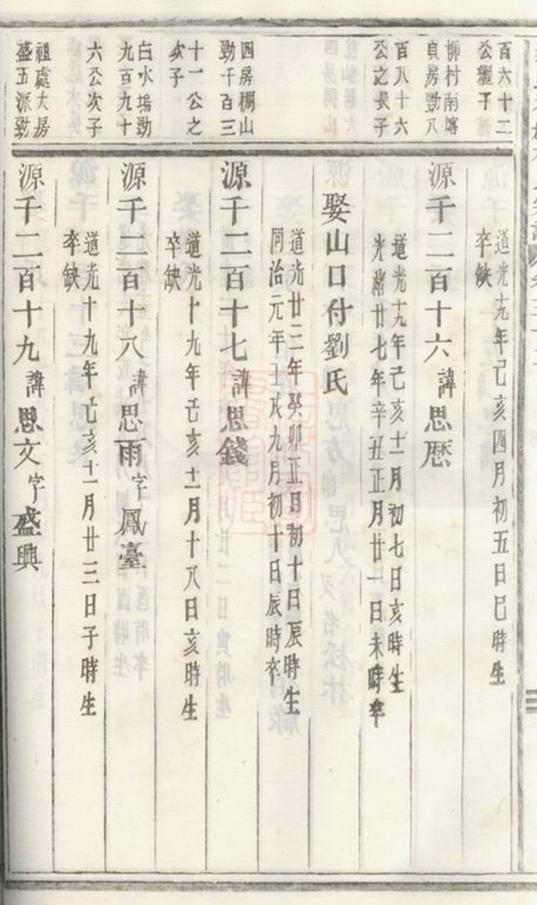 百六十二
公子
柳村南
貞房勁八
百八十六
公之長子
四房山
勁千百三
十一公之
次子
白水塢勁
九百九十
六公次子
祖處大房
盛五派勁
道光十九年己亥四月初五日巳時生
卒缺
源千二百十六諱思歷
道光十九年己亥十一月初七日亥時生
光緒廿七年辛丑正月廿一日未時卒
娶山口付劉氏
道光廿二年癸卯正月初十日辰時生
同治元年壬戌九月初十日辰時卒
源千二百十七諱思錢
道光十九年己亥十一月十八日亥時生
卒缺
源千二百十八諱思雨字鳳臺
道光十九年己亥十一月廿三日子時生
卒缺
源千二百十九諱思文字盛興